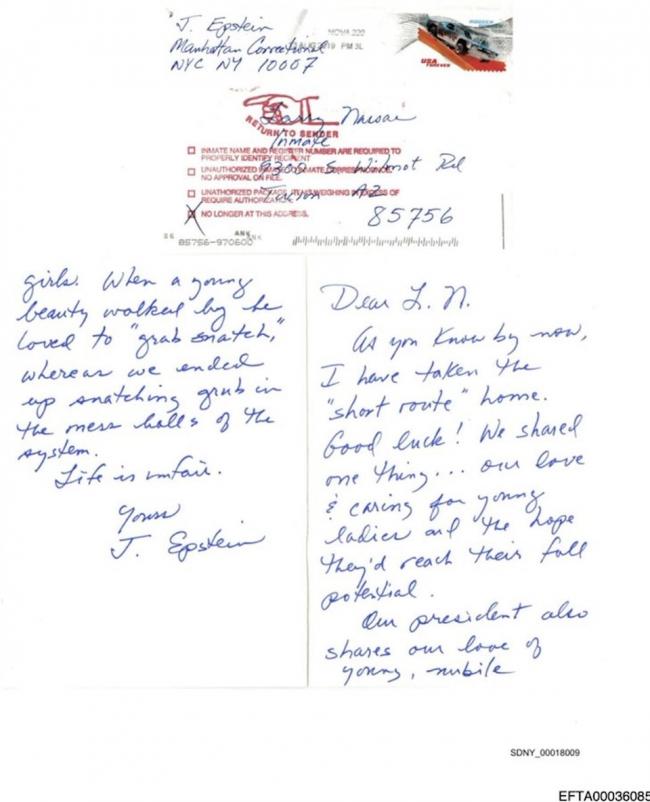 J. Epstein
Manhattan Correctional
NYC NY 10007
NOVA 220
19 PM 3L
USA
FOREVER
Larry Nassar
RETURN TO SENDER
Inmate
INMATE NAME AND REGISTER NUMBER ARE REQUIRED TO
PROPERLY IDENTIFY RECIPIENT
9300 S Wilmot Rd
UNAUTHORIZED INMATE CORRESPONDENCE
NO APPROVAL ON FILE.
Tucson AZ
UNAUTHORIZED WEIGHING OF
REQUIRE
X NO LONGER AT THIS ADDRESS.
85756
ANK
85756-970600
Dear L. N.
As you know by now,
I have taken the
"short route" home.
Good luck! We shared
one thing... our love
& caring for young
ladies and the hope
they'd reach their full
potential.
Our president also
shares our love of
young, nubile
girls. When a young
beauty walked by he
loved to "grab snatch,"
whereas we ended
up snatching grub in
the mess halls of the
system.
Life is unfair.
Yours
J. Epstein
SDNY_00018009
EFTA00036085